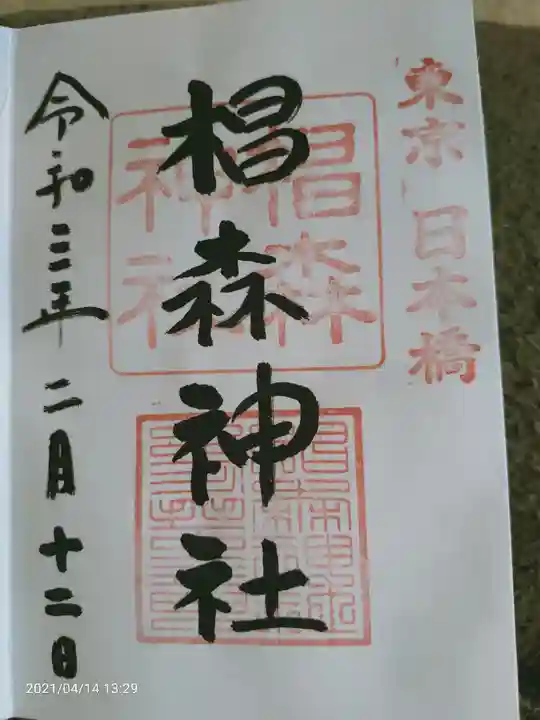 東京 日本橋
椙森神社
椙森
神社
令和三年二月十二日
2021/04/14 13:29